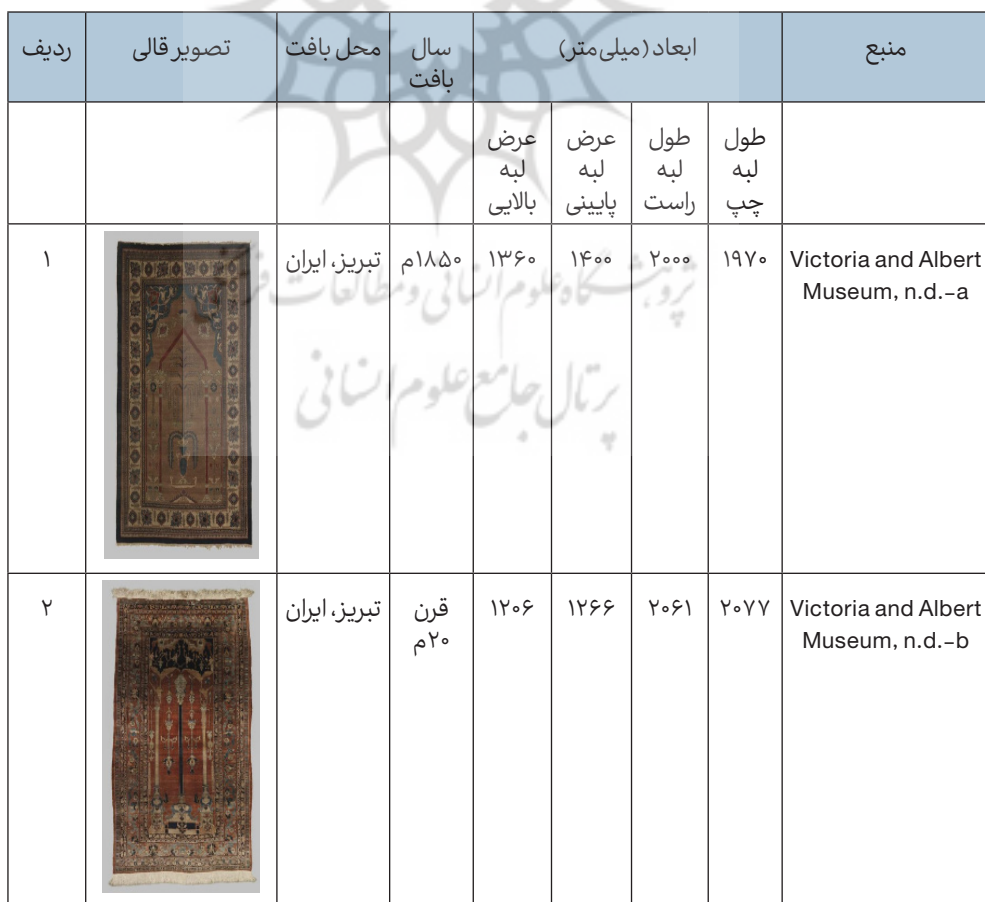 ردیف
تصویر قالی
محل بافت
سال
بافت
ابعاد (میلی‌متر)
منبع
عرض
لبه
بالایی
عرض
لبه
پایینی
طول
لبه
راست
طول
لبه
چپ
۱
تبریز، ایران
۱۸۵۰م
۱۳۶۰
۱۴۰۰
۲۰۰۰
۱۹۷۰
Victoria and Albert
Museum, n.d.-a
۲
تبریز، ایران
قرن
۲۰م
۱۲۰۶
۱۲۶۶
۲۰۶۱
۲۰۷۷
Victoria and Albert
Museum, n.d.-b
پژوهشگاه علوم انسانی و مطالعات فرهنگی
پرتال جامع علوم انسانی